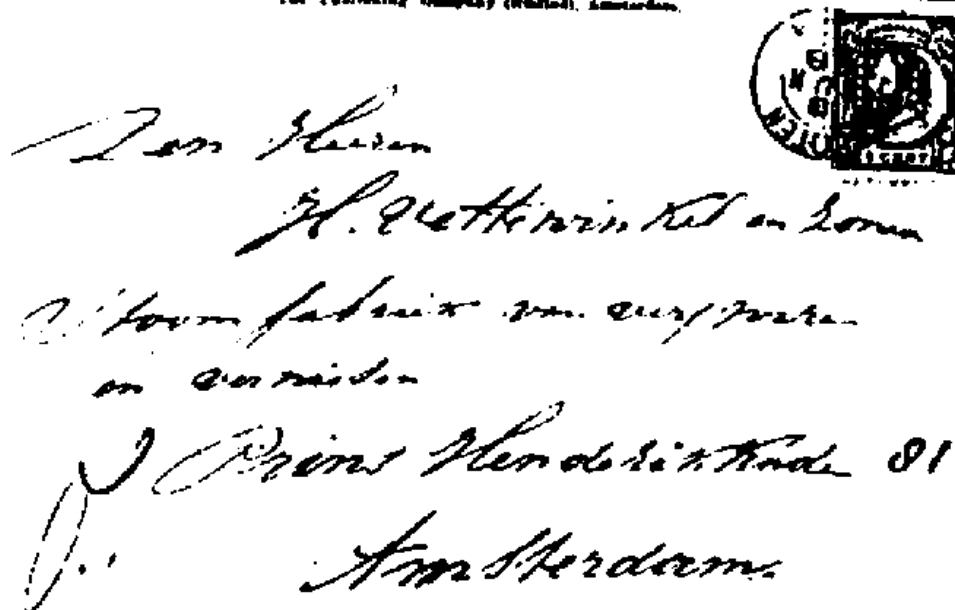 The Publishing Company (Limited), Amsterdam.
Den Heeren
H. Vettewinkel en Zonen
Stoomfabriek van verfwaren
en vernissen
Prins Hendrikkade 81
Amsterdam.